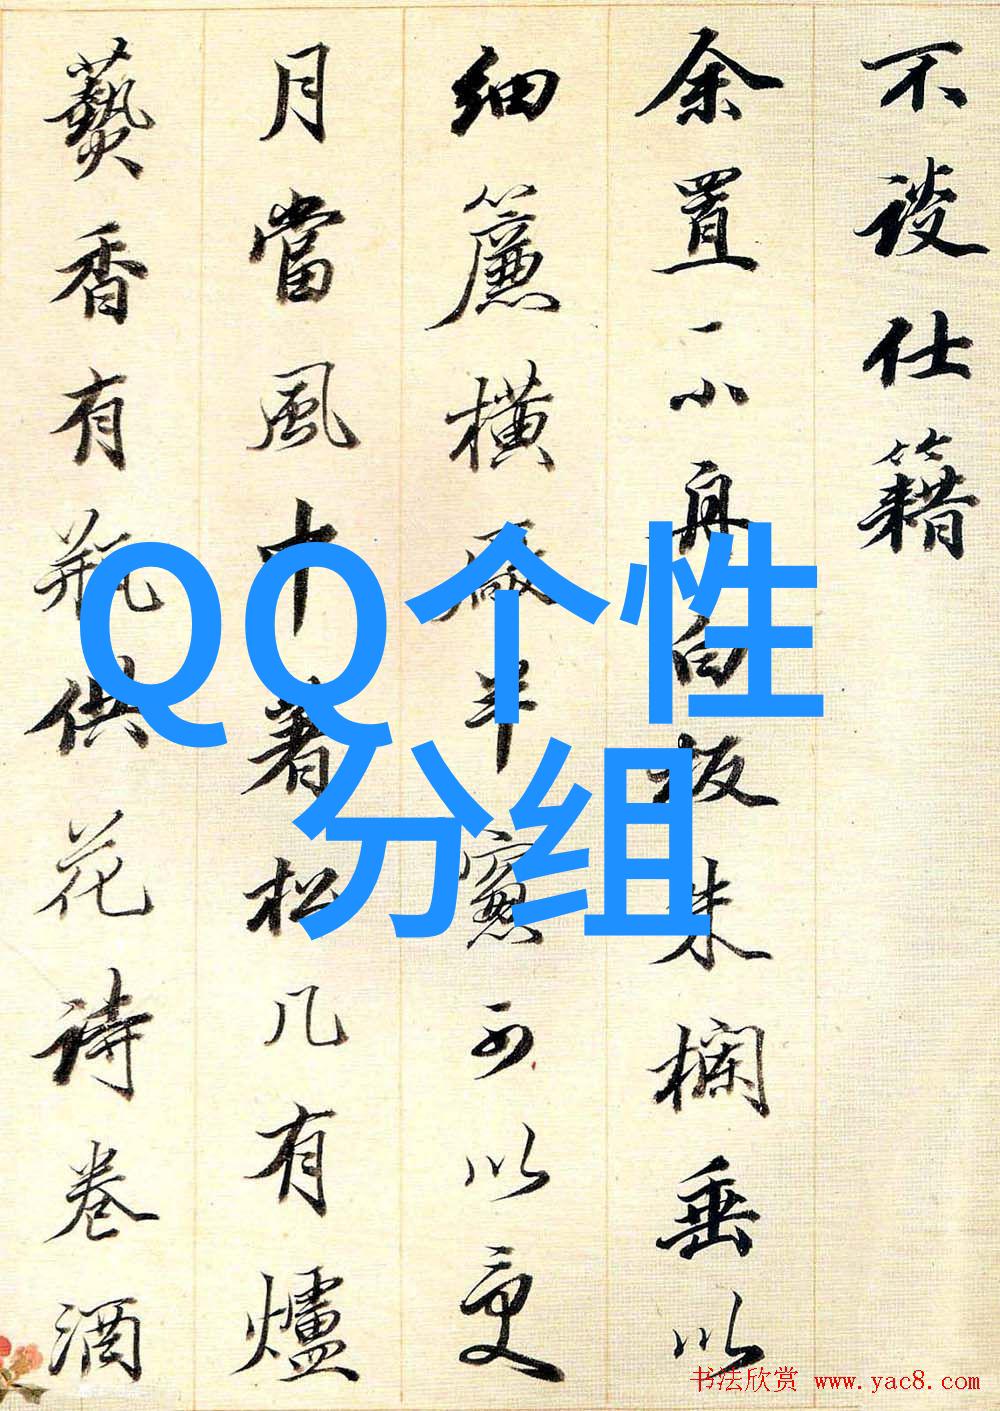 不談仕籍
余置一小舟白板朱欄垂以
細簾橫半窻可以受
月當風中著松几有爐
爇香有瓶供花詩卷酒
QQ个性
分组
书法欣赏 www.yac8.com